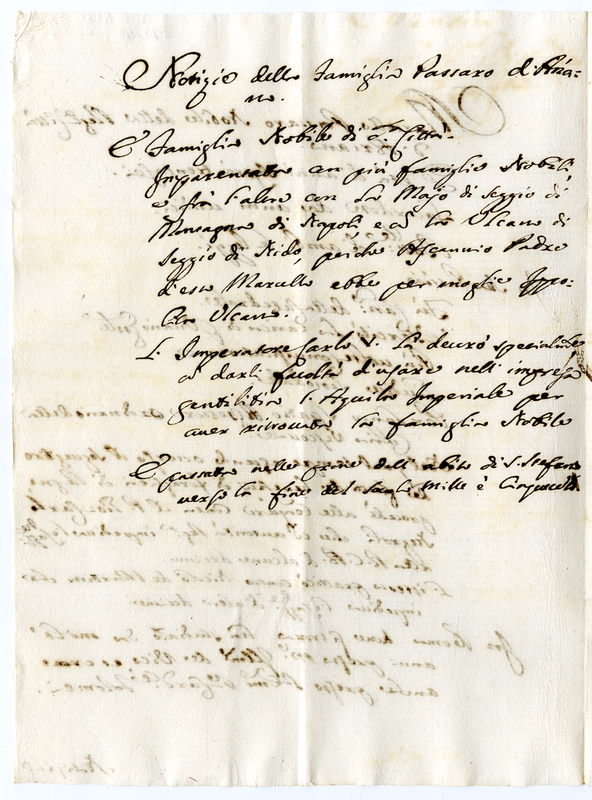 Notizie della Famiglia Passaro di Aria=
no.
È Famiglia Nobile di d.ª Città.
Imparentatta con più famiglie Nobili
e frà l'altre con la Majo di seggio di
Montagna di Napoli, e cõ la Ulcano di
seggio di Nido, perche Ascannio Padre
d'esso Marcello ebbe per moglie Ippo=
lita Ulcano.
L'Imperatore Carlo V. la decorò specialmte
cõ darli facoltà d'usare nell'impresa
gentilitia l'Aquila Imperiale per
aver ritrovata la famiglia Nobile
È passata nelle prove dell'abito di S. Stefano
verso la fine del secolo Mille è Cinquecento